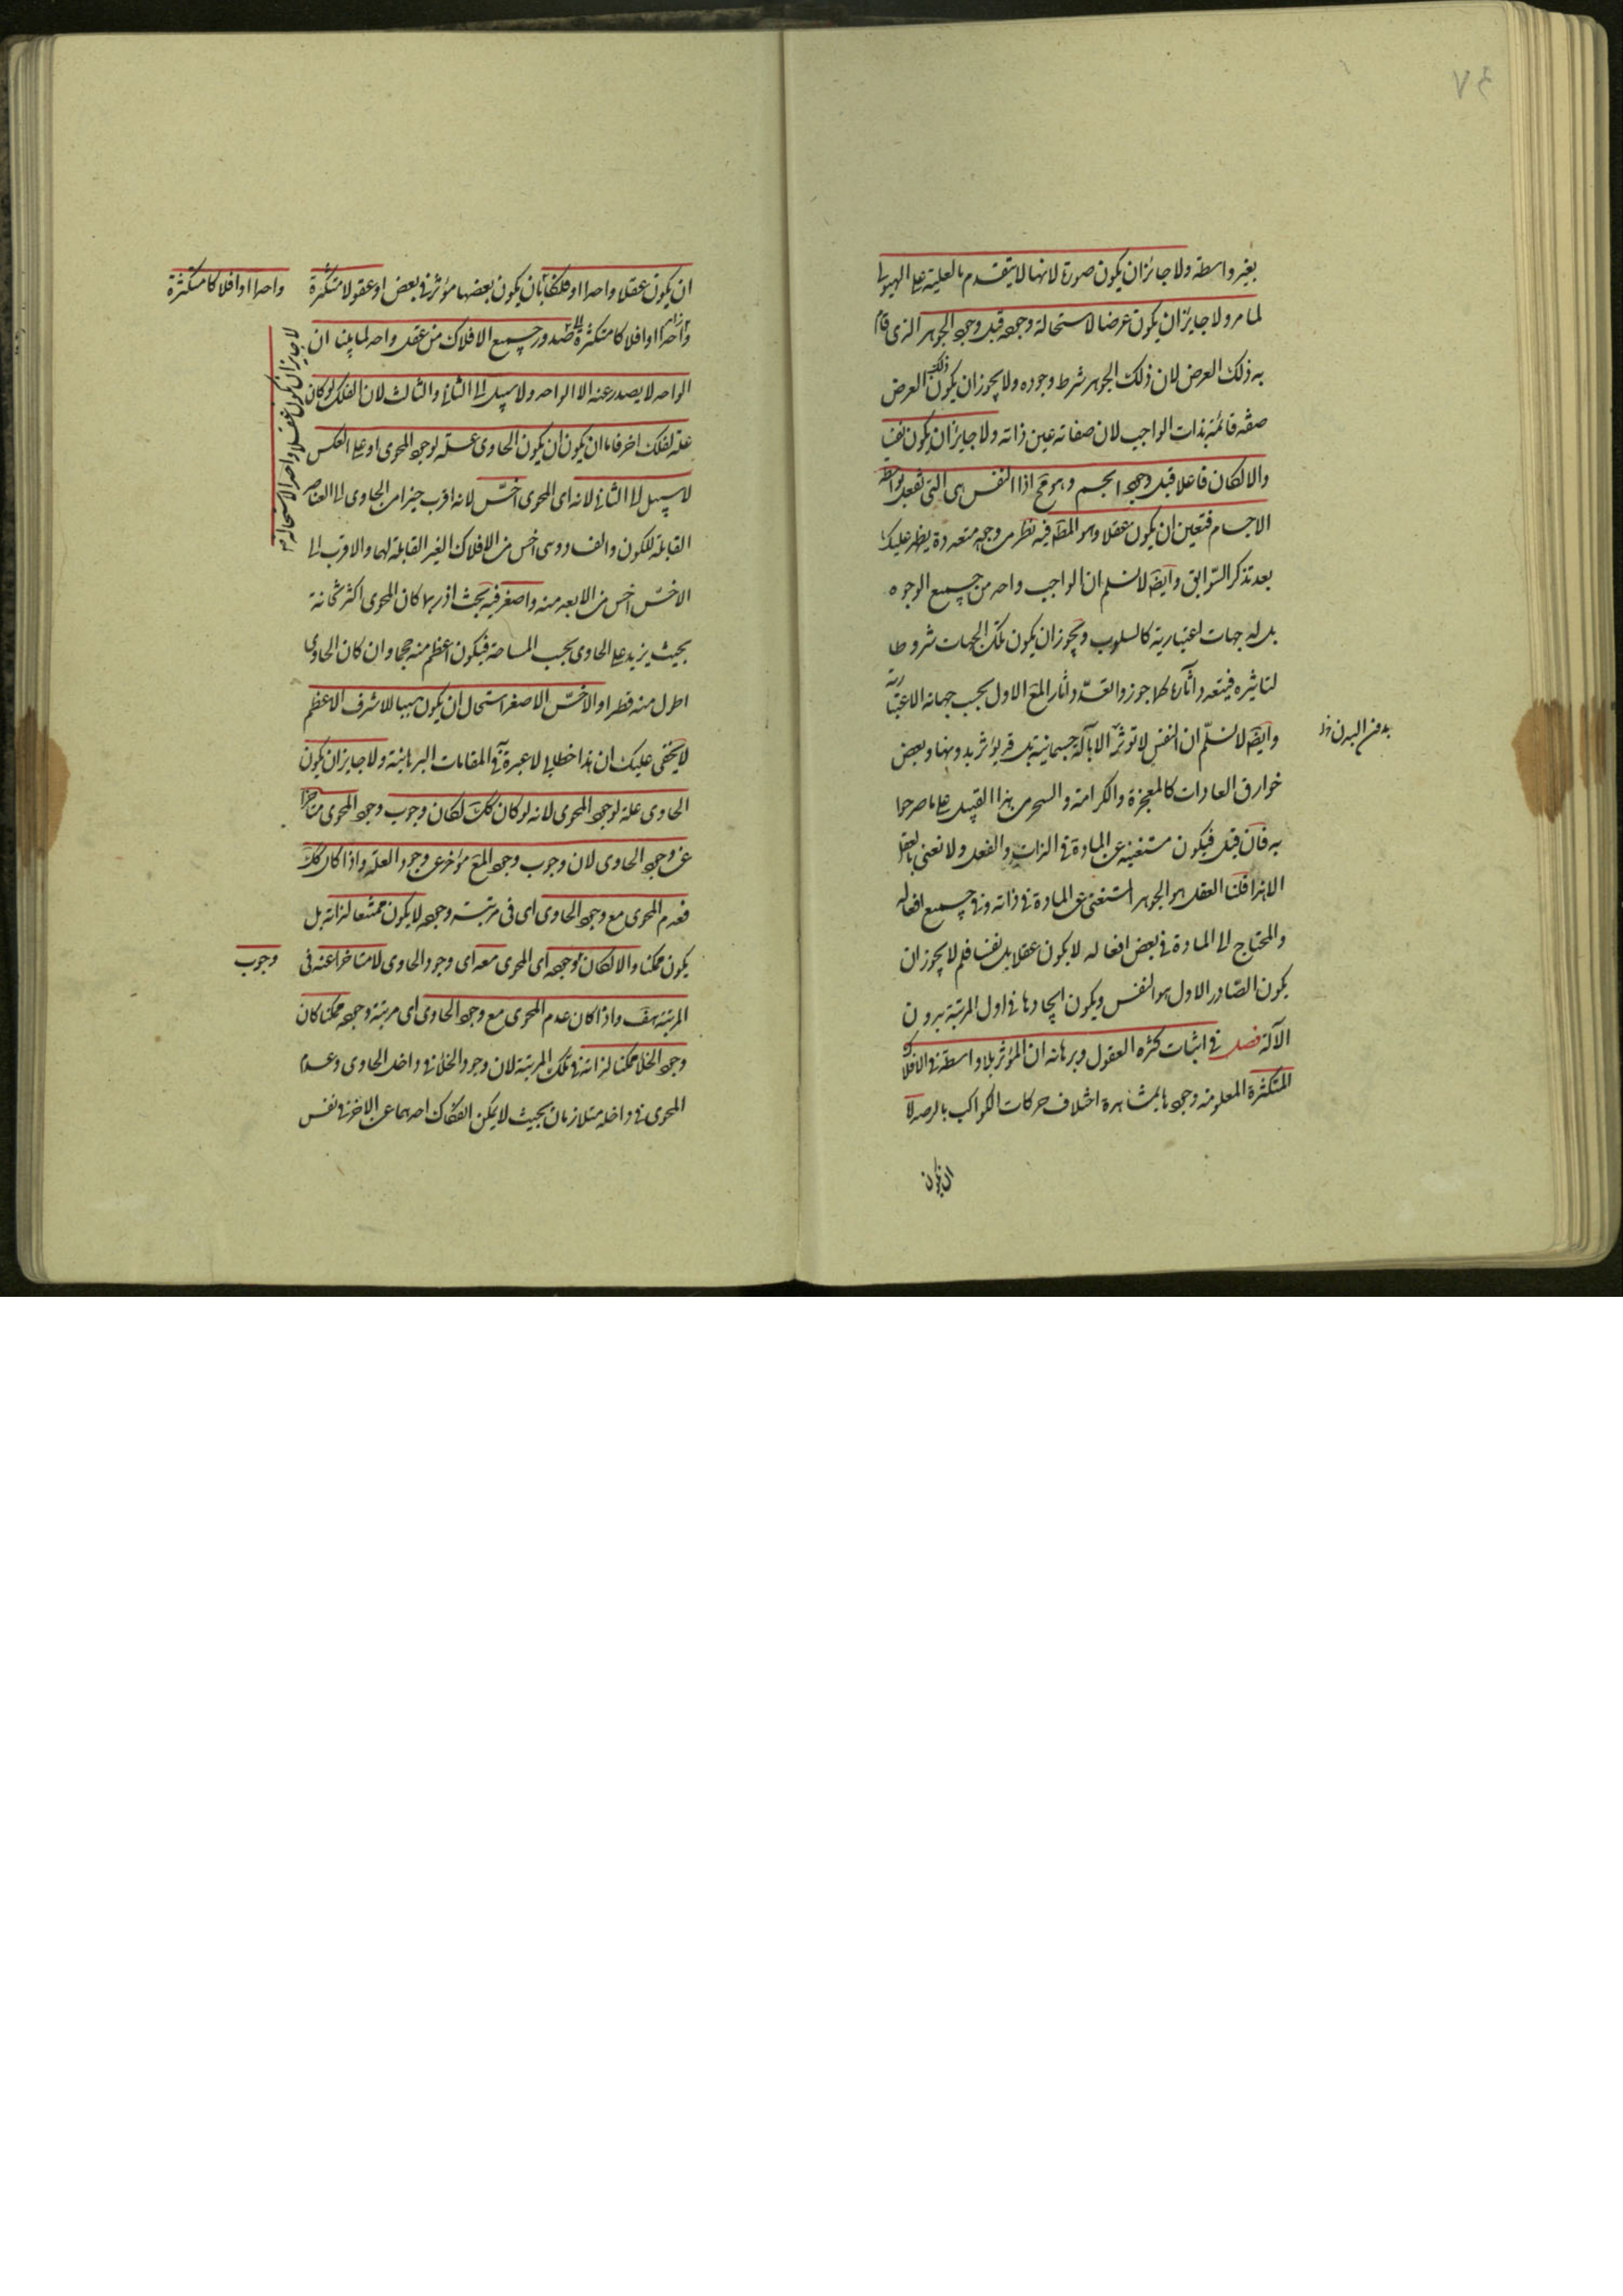 ٤٧
بغير واسطة ولا جائز ان يكون صورة لانها لا يتقدم بالعلية على الهيولى
لما مر ولا جايز ان يكون عرضا لاستحالة وجوده قبل وجود الجوهر الذى قام
به ذلك العرض لان ذلك الجوهر شرط وجوده ولا يجوز ان يكون ذلك العرض
صفة قائمة بذات الواجب لان صفاته عين ذاته ولا جايز ان يكون نفسا
والا لكان فاعلا قبل وجود الجسم وهو مح اذا النفس هى التى تفعل بواسطة
الاجسام فتعين ان يكون عقلا وهو المط فيه نظر من وجوه متعددة يظهر عليك
بعد تذكر السوابق وايضا لا نسلم ان الواجب واحد من جميع الوجوه
بل له جهات اعتبارية كالسلوب ويجوز ان يكون تلك الجهات شروطا
لتاثيره فيتعدد اثاره كما جوزوا تعدد اثار المع الاول بحسب جهاته الاعتبارية
وايضا لا نسلم ان النفس لا توثر الا بآلة جسمانية بل قد يؤثر بدونها وبعض
بدفن البدن
خوارق العادات كالمعجزة والكرامة والسحر من هذا القبيل على ما صرحوا
به فان قيل فيكون مستغنية عن المادة فى الذات والفعل ولا نعنى بالعقل
الا هذا قلنا العقل هو الجوهر المستغنى عن المادة فى ذاته وفى جميع افعاله
والمحتاج الى المادة فى بعض افعاله لا يكون عقلا بل نفسا فلم لا يجوز ان
يكون الصادر الاول هو النفس ويكون ايجادها فى اول المرتبة بدون
الآلة فصل فى اثبات كثرة العقول وبرهانه ان المؤثر بلا واسطة فى الافلاك
المتكثرة المعلومة وجودها بمشاهدة اختلاف حركات الكواكب بالرصد لا
ان يكون
ان يكون عقلا واحدا او فلكا بان يكون بعضها مؤثر فى بعض او عقولا متكثرة
واحدا او افلاكا متكثرة
واحدا او افلاكا متكثرة صدور جميع الافلاك من عقل واحد لما بينا ان
لا جايز ان يكون عقلا واحدا لاستحالة
الواحد لا يصدر عنه الا الواحد ولا سبيل الى الثانى والثالث لان الفلك لو كان
علة لفلك اخر فاما ان يكون ان يكون الحاوى علة لوجود المحوى او على العكس
لا سبيل الى الثانى لانه اى المحوى اخس لانه اقرب حيزا من الحاوى الى العناصر
القابلة للكون والفساد وهى اخس من الافلاك الغير القابلة لهما والاقرب الى
الاخس اخس من الابعد منه واصغر فيه بحث اذ ربما كان المحوى اكثر ثخانة
بحيث يزيد على الحاوى بحسب المساحة فيكون اعظم منه حجما وان كان الحاوى
اطول منه قطرا والاخس الاصغر استحال ان يكون سببا للاشرف الاعظم
لا يخفى عليك ان هذا خطابى لا عبرة به فى المقامات البرهانية ولا جايز ان يكون
الحاوى علة لوجود المحوى لانه لو كان كك لكان وجوب وجود المحوى متاخرا
عن وجود الحاوى لان وجوب وجود المع مؤخر عن وجود العلة واذا كان كك
فعدم المحوى مع وجود الحاوى اى فى مرتبته وجوده لا يكون ممتنعا لذاته بل
يكون ممكنا والا لكان وجوده اى المحوى معه اى وجود الحاوى لا متاخرا عنه فى
وجوب
المرتبة هف واذا كان عدم المحوى مع وجود الحاوى اى مرتبة وجوده ممكنا كان
وجود الخلا ممكنا لذاته فى تلك المرتبة لان وجود الخلا فى داخل الحاوى وعدم
المحوى فى داخله متلازمان بحيث لا يمكن انفكاك احدهما عن الاخر فى نفس